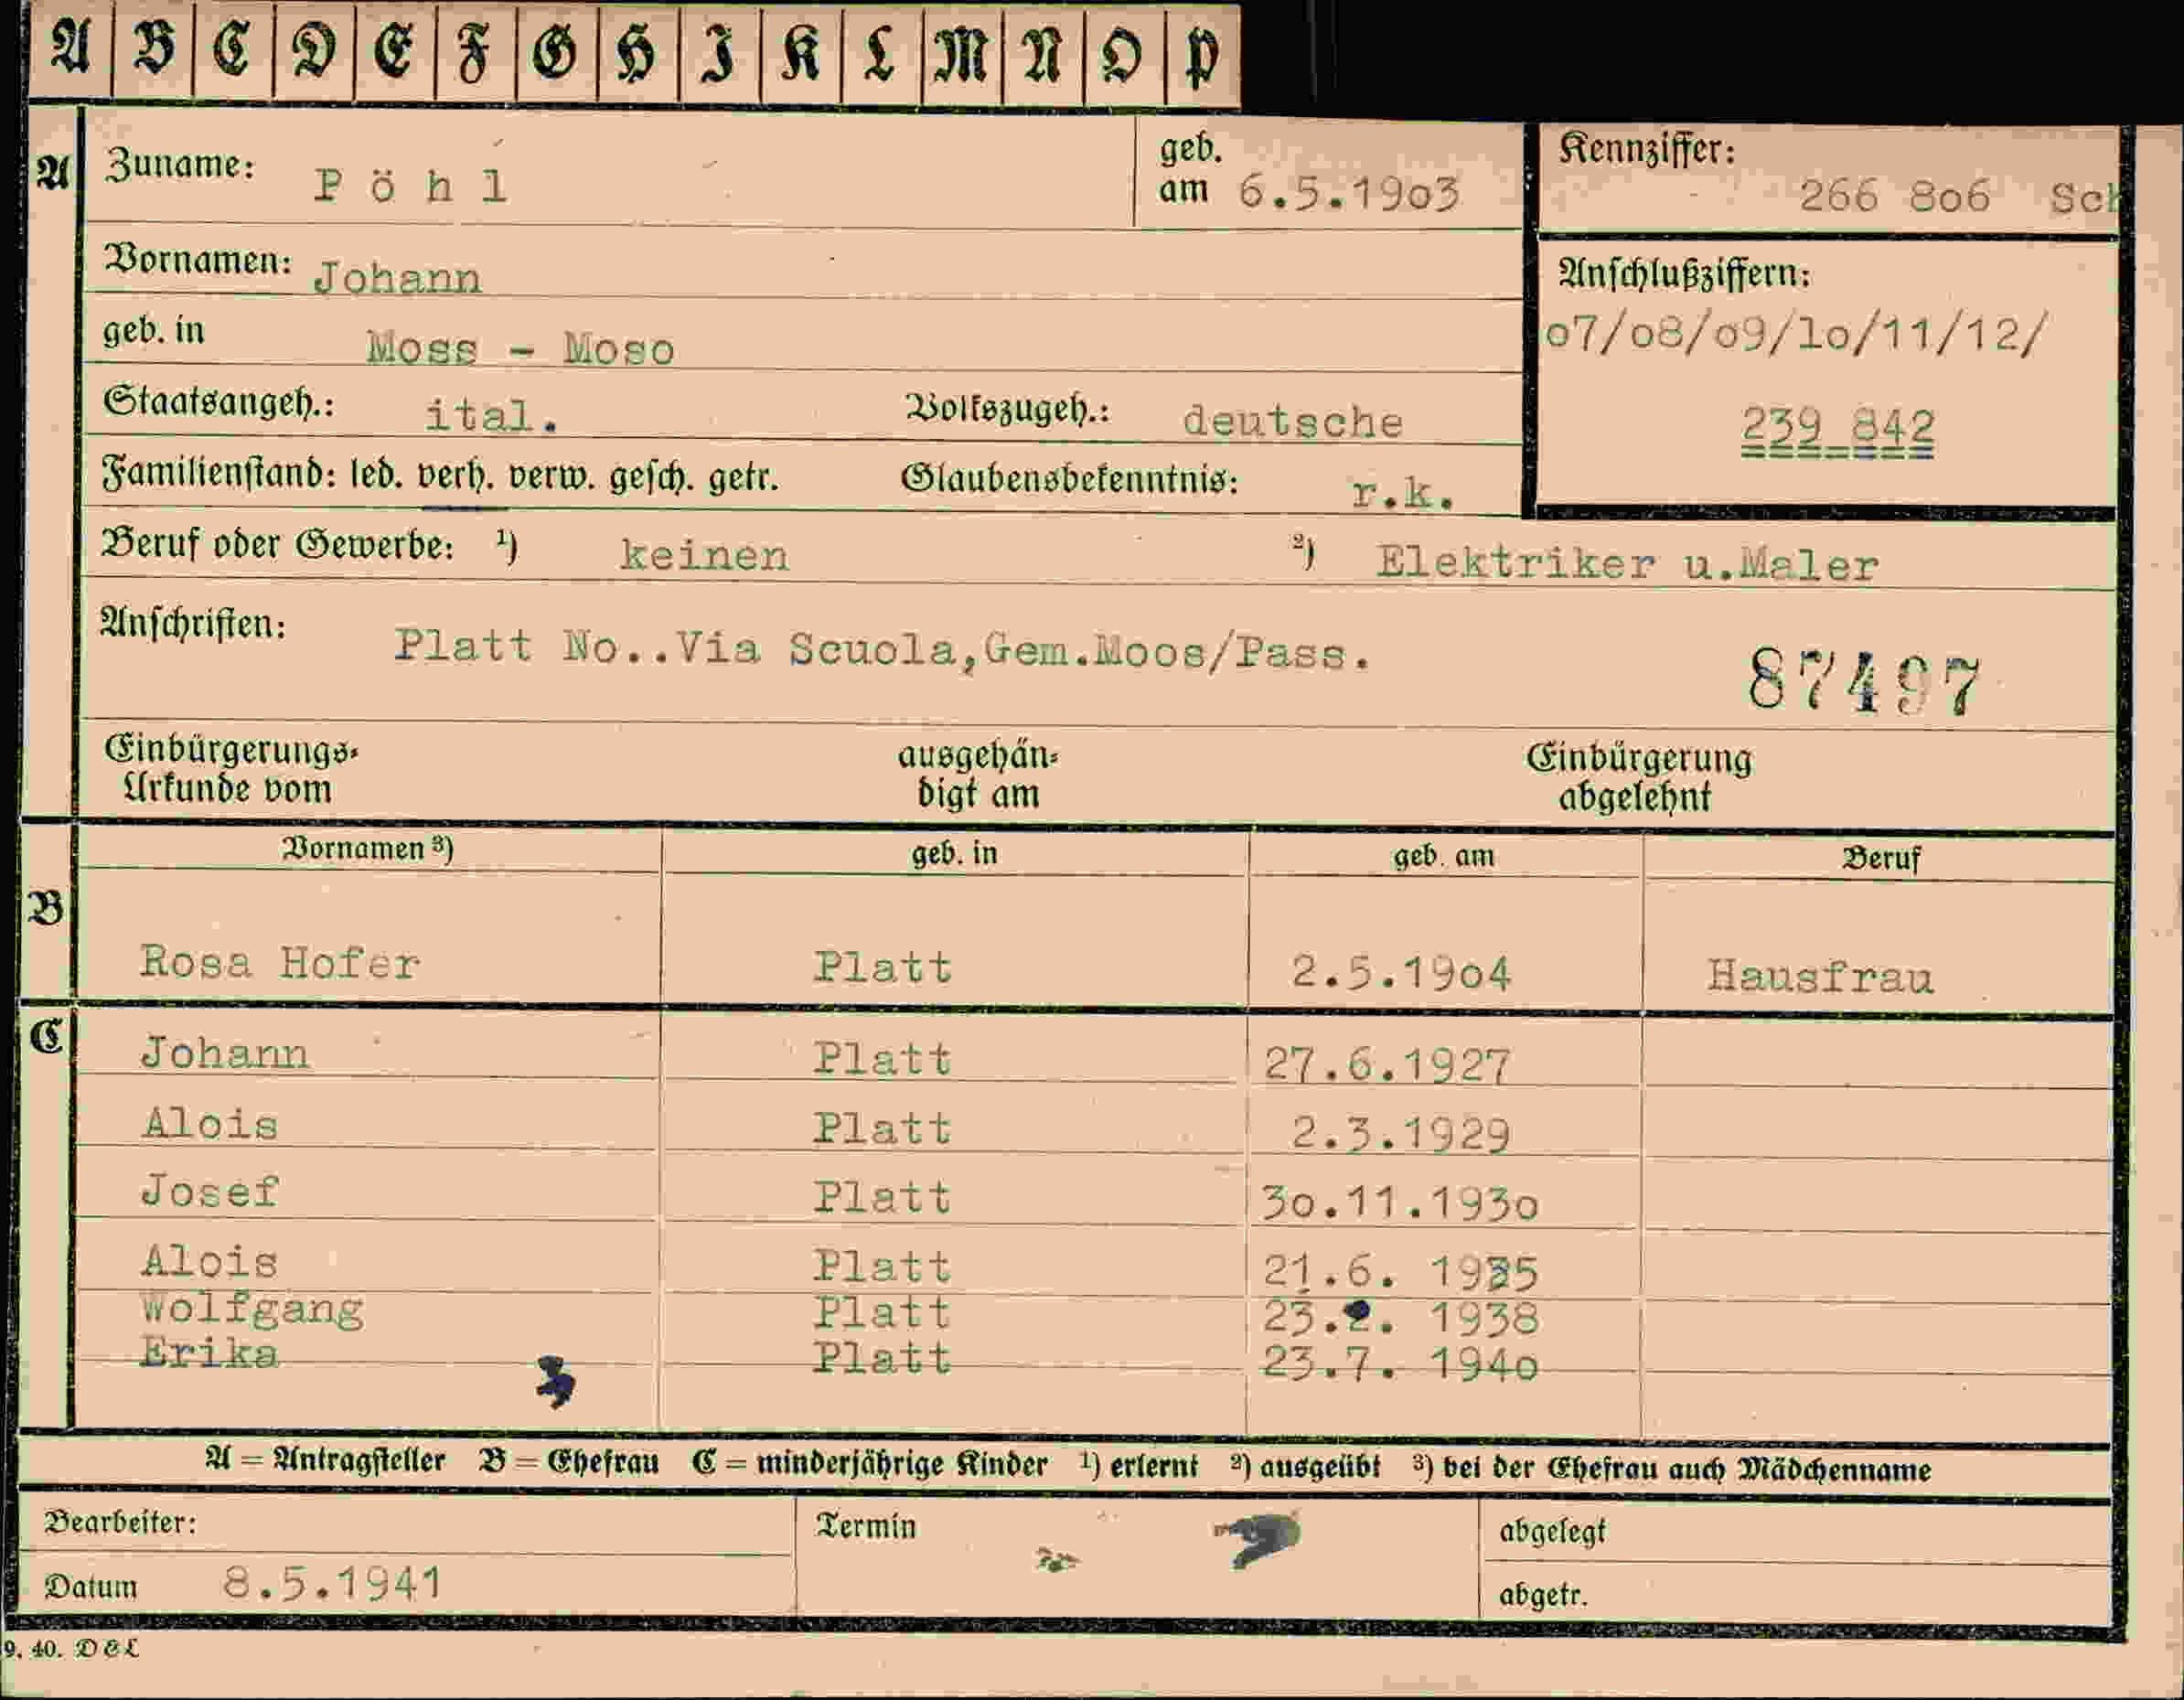 A B C D E F G H I K L M N O P
A Zuname: Pöhl geb. am 6.5.19o3 Kennziffer: 266 8o6 Sch
Vornamen: Johann Anschlußziffern:
geb. in Moss - Moso o7/o8/o9/1o/11/12/
Staatsangeh.: ital. Volkszugeh.: deutsche 239 842
Familienstand: led. verh. verw. gesch. getr. Glaubensbekenntnis: r.k.
Beruf oder Gewerbe: ¹) keinen ²) Elektriker u.Maler
Anschriften: Platt No..Via Scuola,Gem.Moos/Pass. 87497
Einbürgerungs- ausgehän- Einbürgerung
Urkunde vom digt am abgelehnt
Vornamen ³) geb. in geb. am Beruf
B Rosa Hofer Platt 2.5.19o4 Hausfrau
C Johann Platt 27.6.1927
Alois Platt 2.3.1929
Josef Platt 3o.11.193o
Alois Platt 21.6. 1935
Wolfgang Platt 23.2. 1938
Erika Platt 23.7. 194o
A = Antragsteller B = Ehefrau C = minderjährige Kinder ¹) erlernt ²) ausgeübt ³) bei der Ehefrau auch Mädchenname
Bearbeiter: Termin abgelegt
Datum 8.5.1941 abgetr.
9. 40. D&L